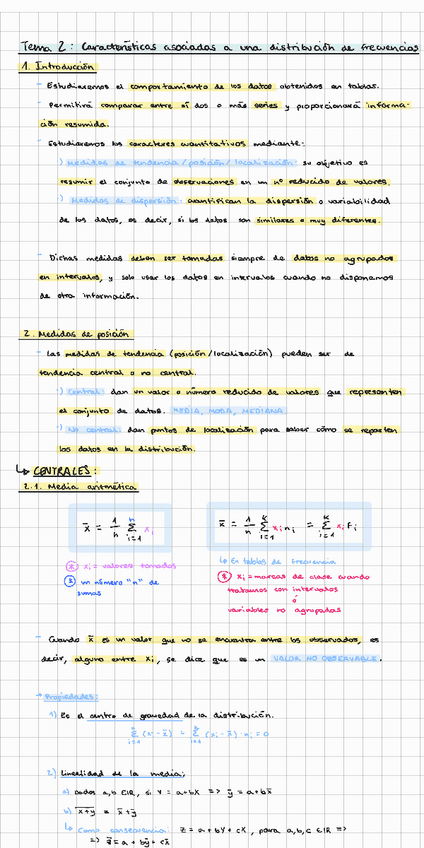 Tema 2: Características asociadas a una distribución de frecuencias
1. Introducción
- Estudiaremos el comportamiento de los datos obtenidos en tablas.
- Permitirá comparar entre sí dos o más series y proporcionará informa-
ción resumida.
- Estudiaremos los caracteres cuantitativos mediante:
·) Medidas de tendencia/posición/localización: su objetivo es
resumir el conjunto de observaciones en un nº reducido de valores.
·) Medidas de dispersión: cuantifican la dispersión o variabilidad
de los datos, es decir, si los datos son similares o muy diferentes.
- Dichas medidas deben ser tomadas siempre de datos no agrupados
en intervalos, y solo usar los datos en intervalos cuando no disponemos
de otra información.
2. Medidas de posición
- Las medidas de tendencia (posición/localización) pueden ser de
tendencia central o no central.
·) Central: dan un valor o número reducido de valores que representen
el conjunto de datos. MEDIA, MODA, MEDIANA
·) No central: dan puntos de localización para saber cómo se reparten
los datos en la distribución.
↳ CENTRALES:
2.1. Media aritmética
x̄ = 1/n Σ_{i=1}^{n} x_i
x̄ = 1/n Σ_{i=1}^{k} x_i n_i = Σ_{i=1}^{k} x_i f_i
x_i = valores tomados
un número "n" de
sumas
↳ En tablas de frecuencia
x_i = marcas de clase cuando
tratamos con intervalos
ó
variables no agrupadas
- Cuando x̄ es un valor que no se encuentra entre los observados, es
decir, alguno entre x_i, se dice que es un VALOR NO OBSERVABLE.
→ Propiedades:
1) Es el centro de gravedad de la distribución.
2) Linealidad de la media:
a) Dados a,b ∈ ℝ, si Y = a+bX => ȳ = a+bx̄
b) x+y = x̄+ȳ
↳ Como consecuencia: Z = a+bY+cX, para a,b,c ∈ ℝ =>
=> z̄ = a + bȳ + cx̄